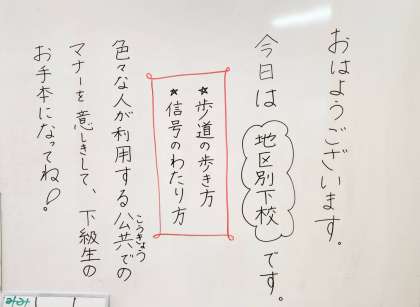 おはようございます。
今日は地区別下校です。
★歩道の歩き方
★信号のわたり方
色々な人が利用する公共での
こうきょう
マナーを意しきして、下級生の
お手本になってね!
みみ